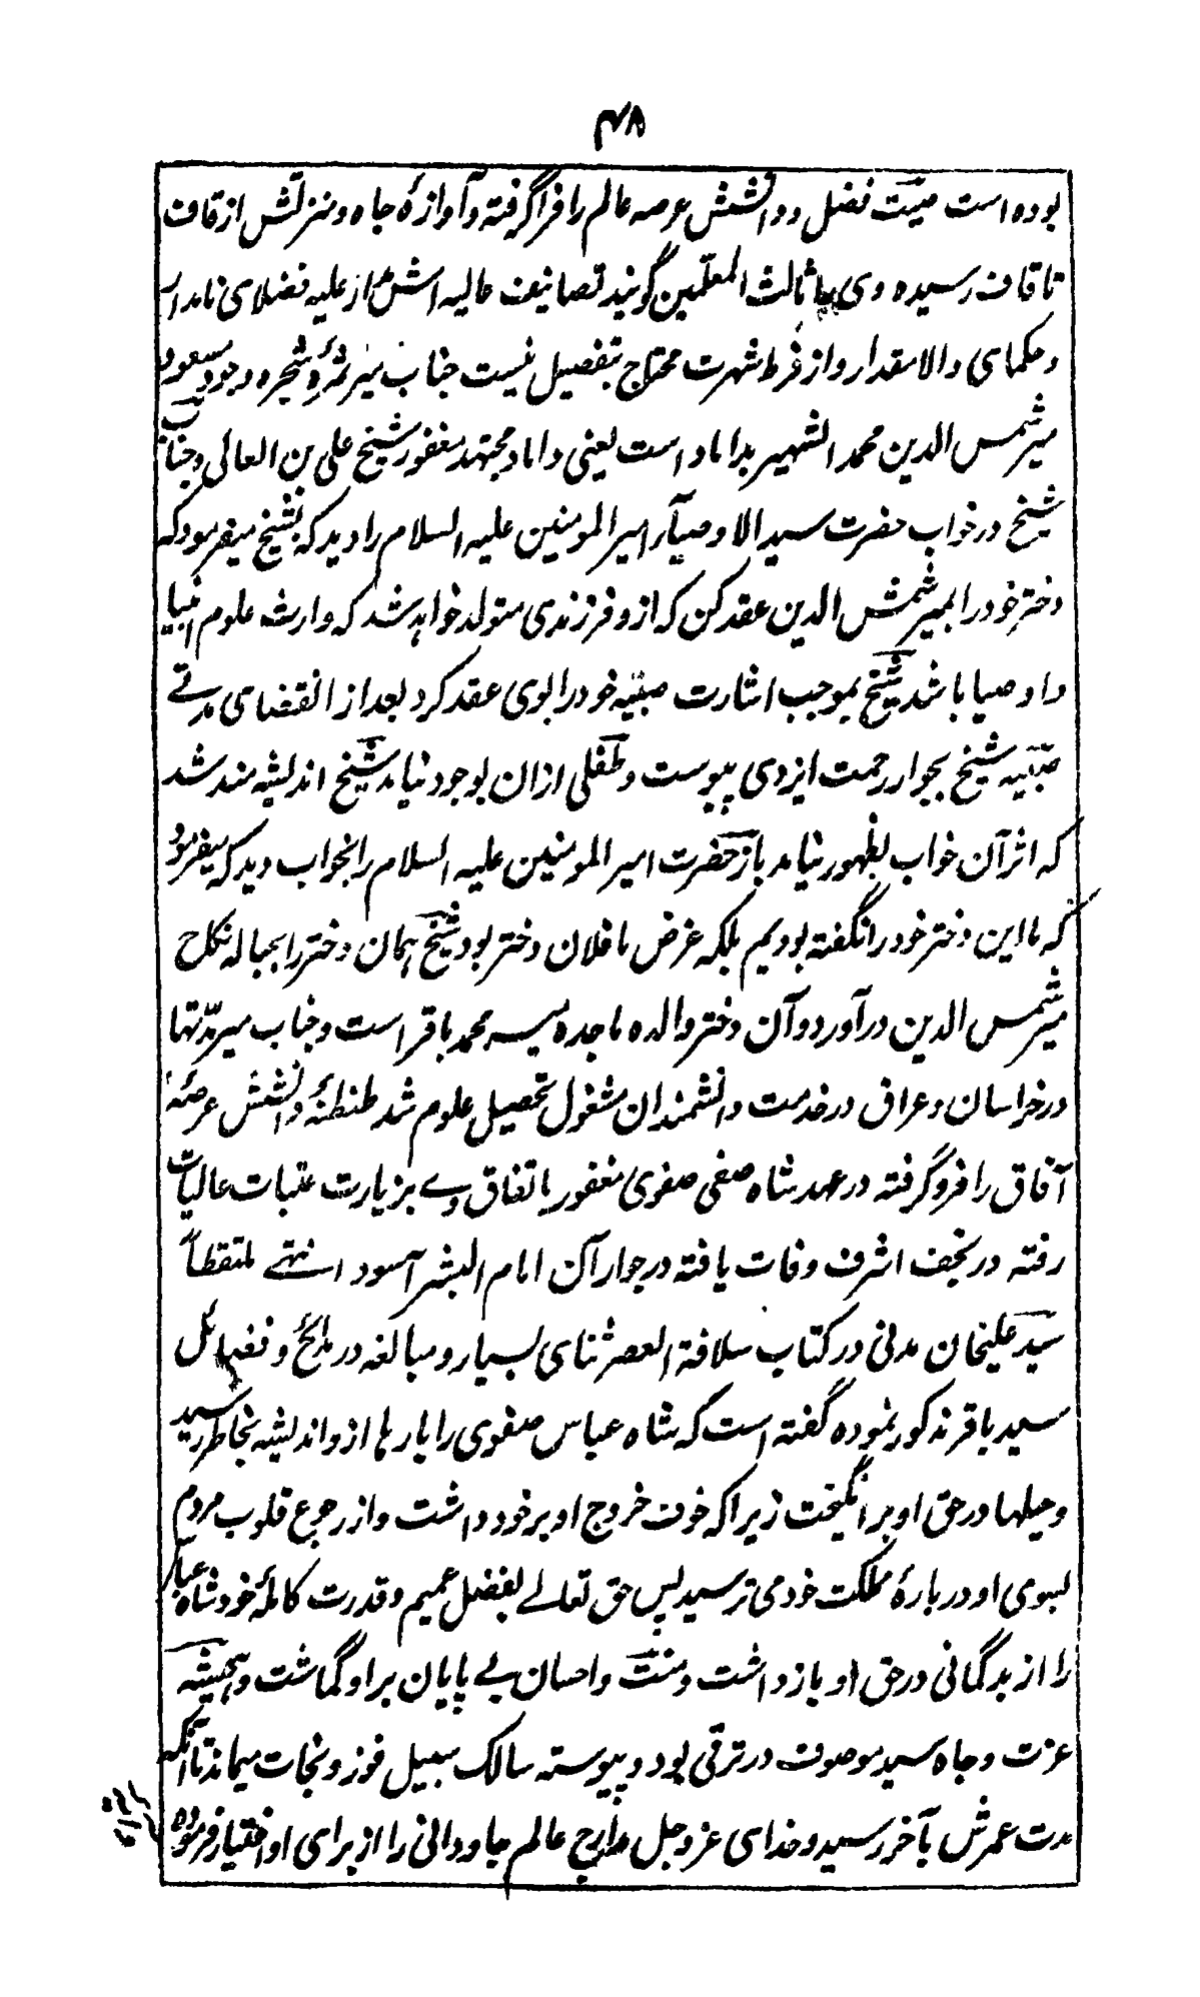 ۴۸
بوده است صیت فضل و دانشش عرصه عالم را فرا گرفته و آوازهٔ جاه و منزلتش از قاف
تا قاف رسیده وی ثالث المعلّمین گویند تصانیف عالیه اش فضلای نامدار
و حکمای والا مقدار و از فرط شهرت محتاج بتفصیل نیست جناب میر ثمرهٔ شجره وجود مسعود
میر شمس الدین محمد الشهیر بداماد است یعنی داماد مجتهد مغفور شیخ علی بن العالی و جناب
شیخ در خواب حضرت سید الاوصیآر امیر المومنین علیه السلام را دید که بشیخ میفرمود که
دختر خود را بمیر شمس الدین عقد کن که ازو فرزندی متولد خواهد شد که وارث علوم انبیا
و اوصیا باشد شیخ بموجب اشارت صبیّه خود را بوی عقد کرد بعد از انقضای مدتے
صبّیه شیخ بجوار رحمت ایزدی پیوست و طفلی ازان بوجود نیامد شیخ اندیشه مند شد
که اثر آن خواب بظهور نیامد باز حضرت امیر المومنین علیه السلام را بخواب دید که میفرمود
که ما این دختر خود را نگفته بودیم بلکه غرض ما فلان دختر بود شیخ همان دختر را بحباله نکاح
میر شمس الدین درآورد و آن دختر والده ماجده میر محمد باقر است و جناب میر مدّتها
در خراسان و عراق در خدمت دانشمندان مشغول تحصیل علوم شد طنطنهٔ دانشش عرصهٔ
آفاق را فرو گرفته در عهد شاه صفی صفوی مغفور باتفاق وے بزیارت عتبات عالیات
رفته در نجف اشرف وفات یافته در جوار آن امام البشر آسود انتہے ملتقطاً
سید علیخان مدنی در کتاب سلافة العصر ثنای بسیار و مبالغه در مدائح و فضائل
سید باقر مذکور نموده گفته است که شاه عباس صفوی را بارها ازو اندیشه بخاطر رسید
و حیلها در حق او بر انگیخت زیرا که خوف خروج او بر خود داشت و از رجوع قلوب مردم
بسوی او در بارهٔ مملکت خود می ترسید پس حق تعالے بفضل عمیم و قدرت کاملهٔ خود شاه عباس
را از بدگمانی در حق او باز داشت و منت و احسان بے پایان بر او گماشت و همیشه
عزت و جاه سید موصوف در ترقی بود و پیوسته سالک سبیل فوز و نجات میماند تا آنکه
مدت عمرش بآخر رسید و خدای عز و جل مدارج عالم جاودانی را از برای او اختیار فرموده